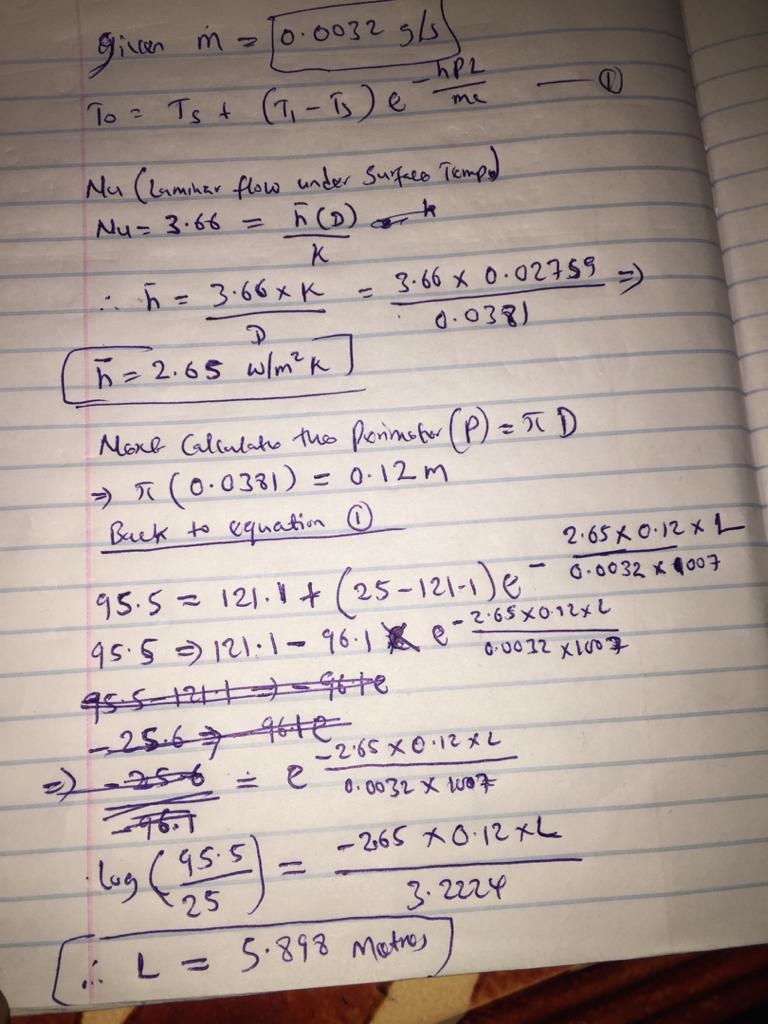 Given ṁ = 0.0032 g/s
To = Ts + (Ti - Ts) e^-hPL/mc — ①
Nu (Laminar flow under Surface Temp)
Nu = 3.66 = h̄(D)/K
∴ h̄ = 3.66 × K/D = 3.66 × 0.02759/0.0381 ⇒
h̄ = 2.65 W/m²K
Next Calculate the Perimeter (P) = π D
⇒ π (0.0381) = 0.12 m
Back to equation ①
95.5 = 121.1 + (25-121.1) e^-2.65 × 0.12 × L/0.0032 × 1007
95.5 ⇒ 121.1 - 96.1 e^-2.65×0.12×L/0.0032 ×1007
95.5-121.1 ⇒ -96.1e
-25.6 ⇒ -96.1e
⇒ -25.6/-96.1 = e^-2.65 × 0.12 × L/0.0032 × 1007
log (95.5/25) = -265 × 0.12 × L/3.2224
∴ L = 5.898 Metres